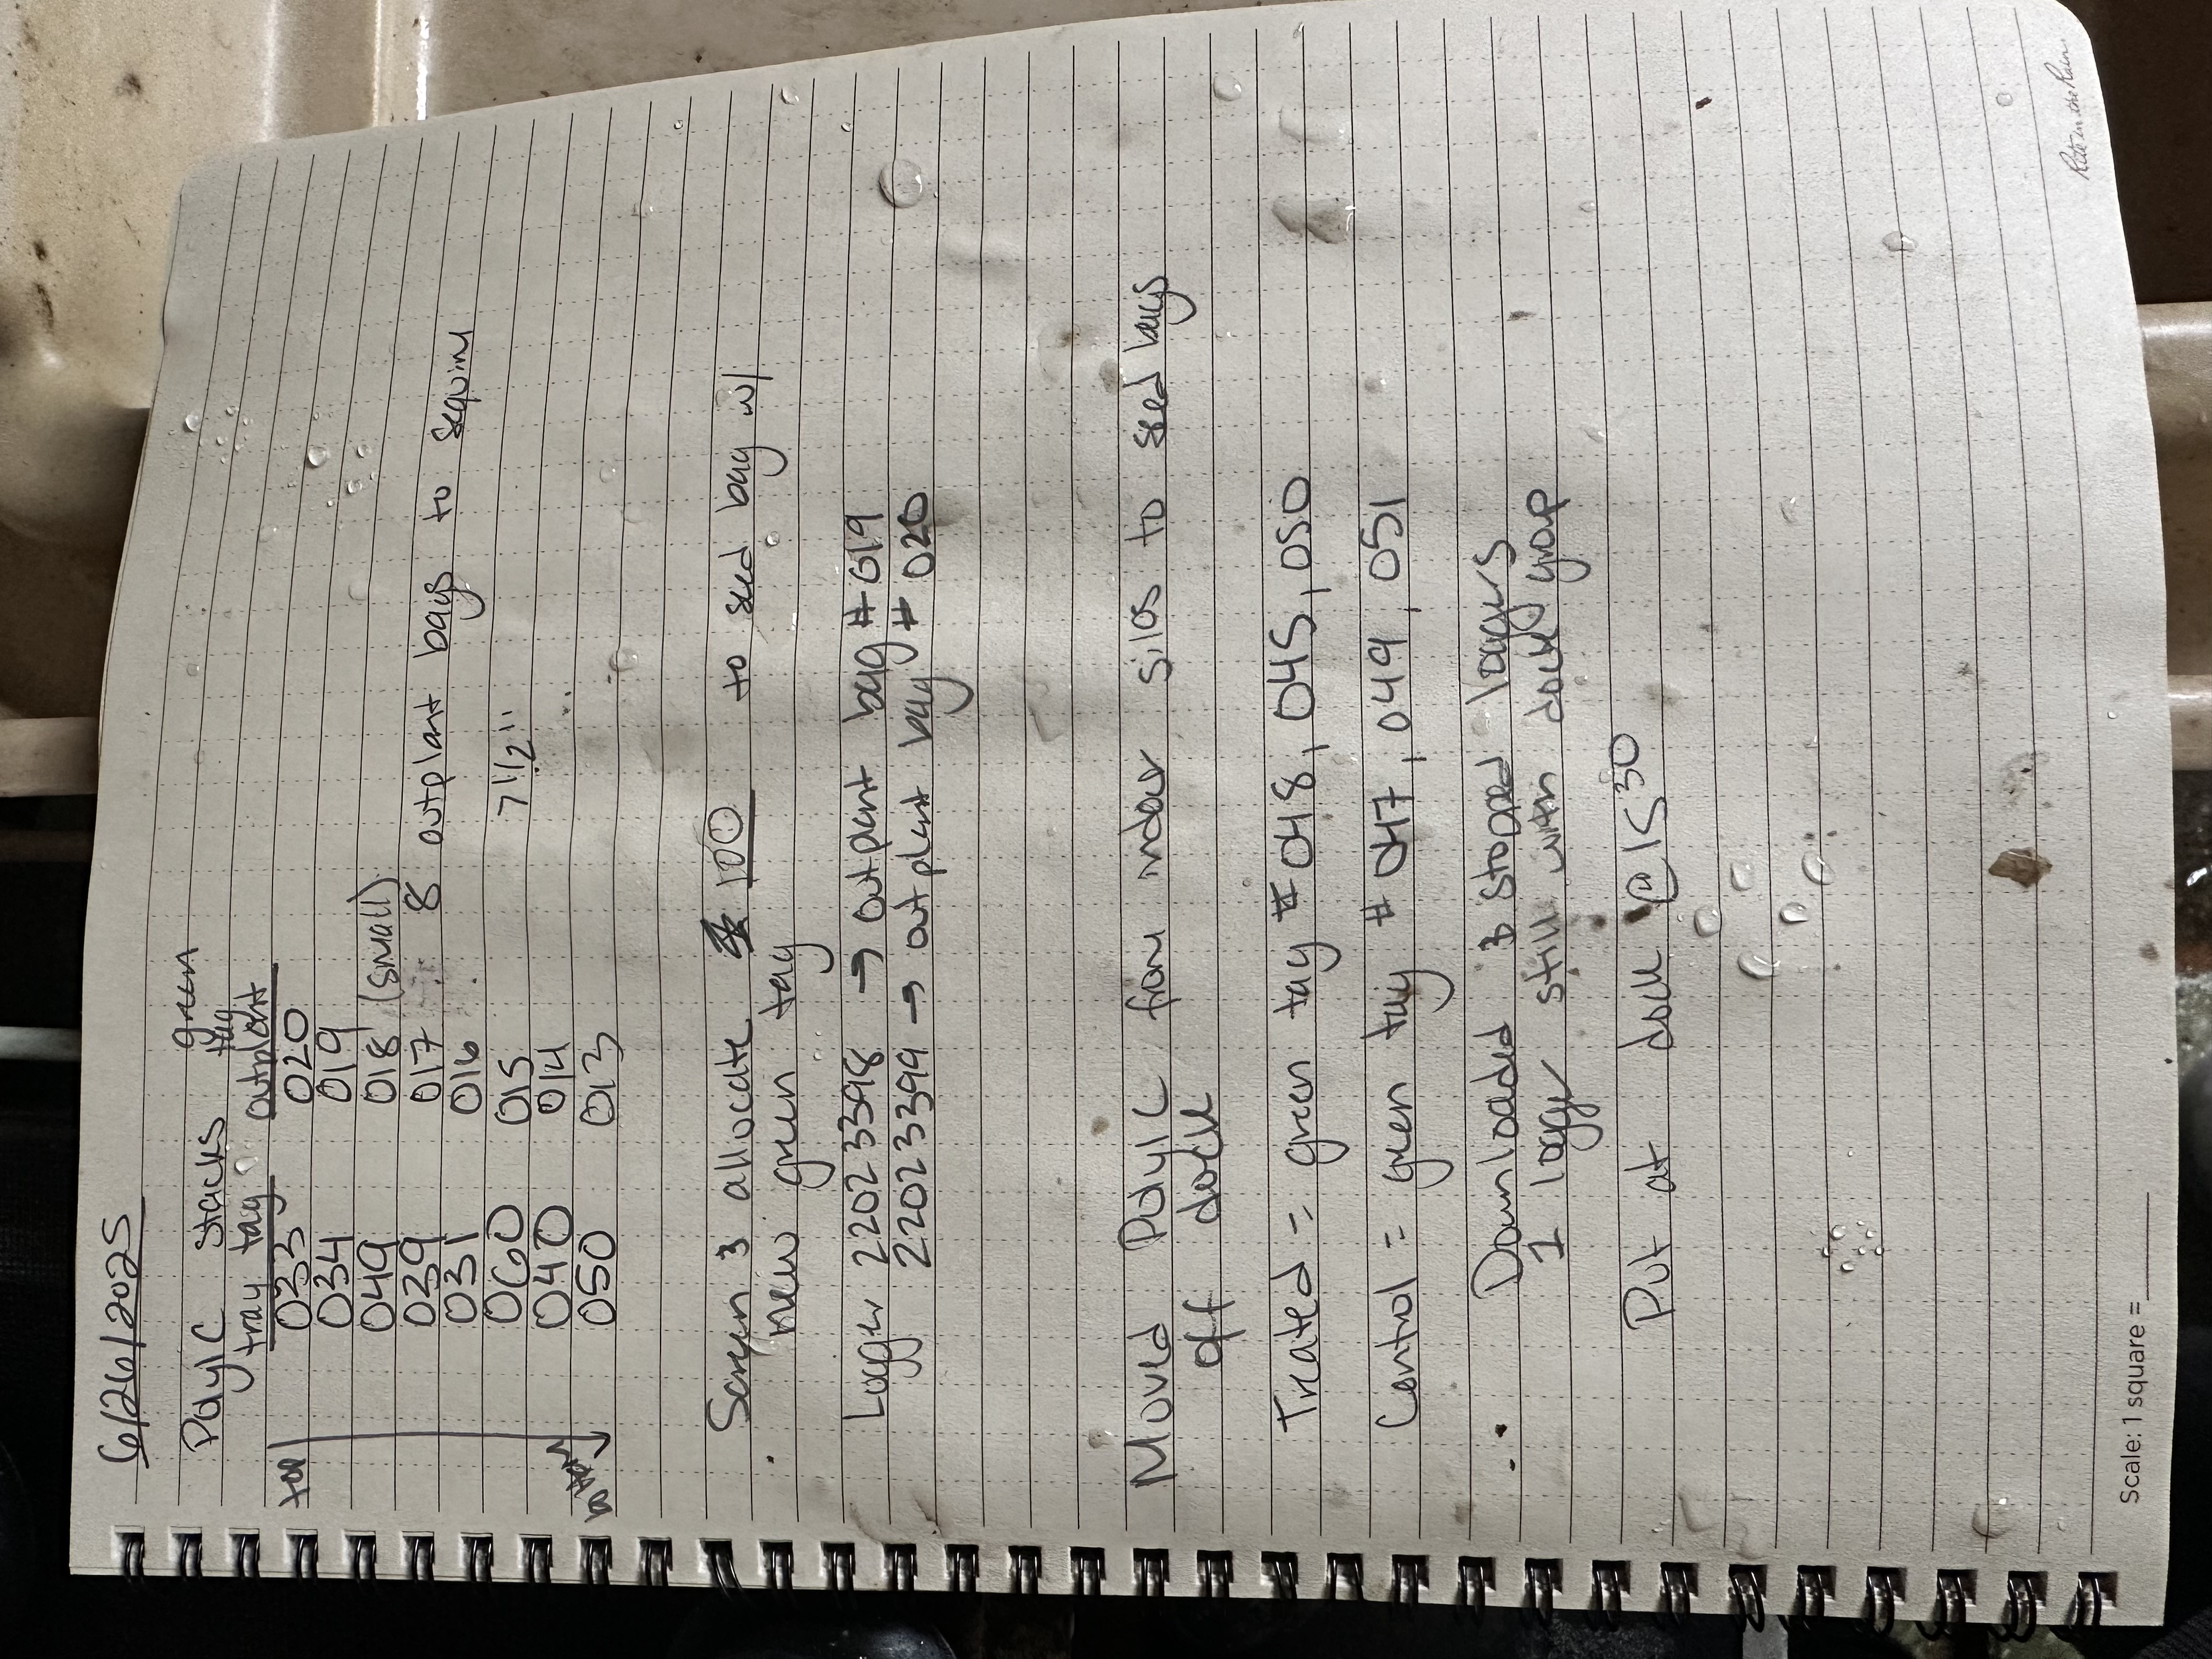 6/26/2025
PolyIC stacks green
tag
tray tag outplant
top 033 020
034 019
049 018 (small)
039 017 8 outplant bags to sequim
031 016
060 015 7 1/2"
040 014
bottom 050 013
Screen & allocate 100 to seed bag w/
new green tag
Logger 22023398 → outplant bag # 019
22023399 → outplant bag # 020
Moved PolyIC from indoor silos to seed bags
off dock
Treated = green tag # 048, 045, 050
Control = green tag # 047, 049, 051
Downloaded & stopped loggers
1 logger still with dock group
Put at dock @ 15 30
Rite in the Rain
Scale: 1 square =